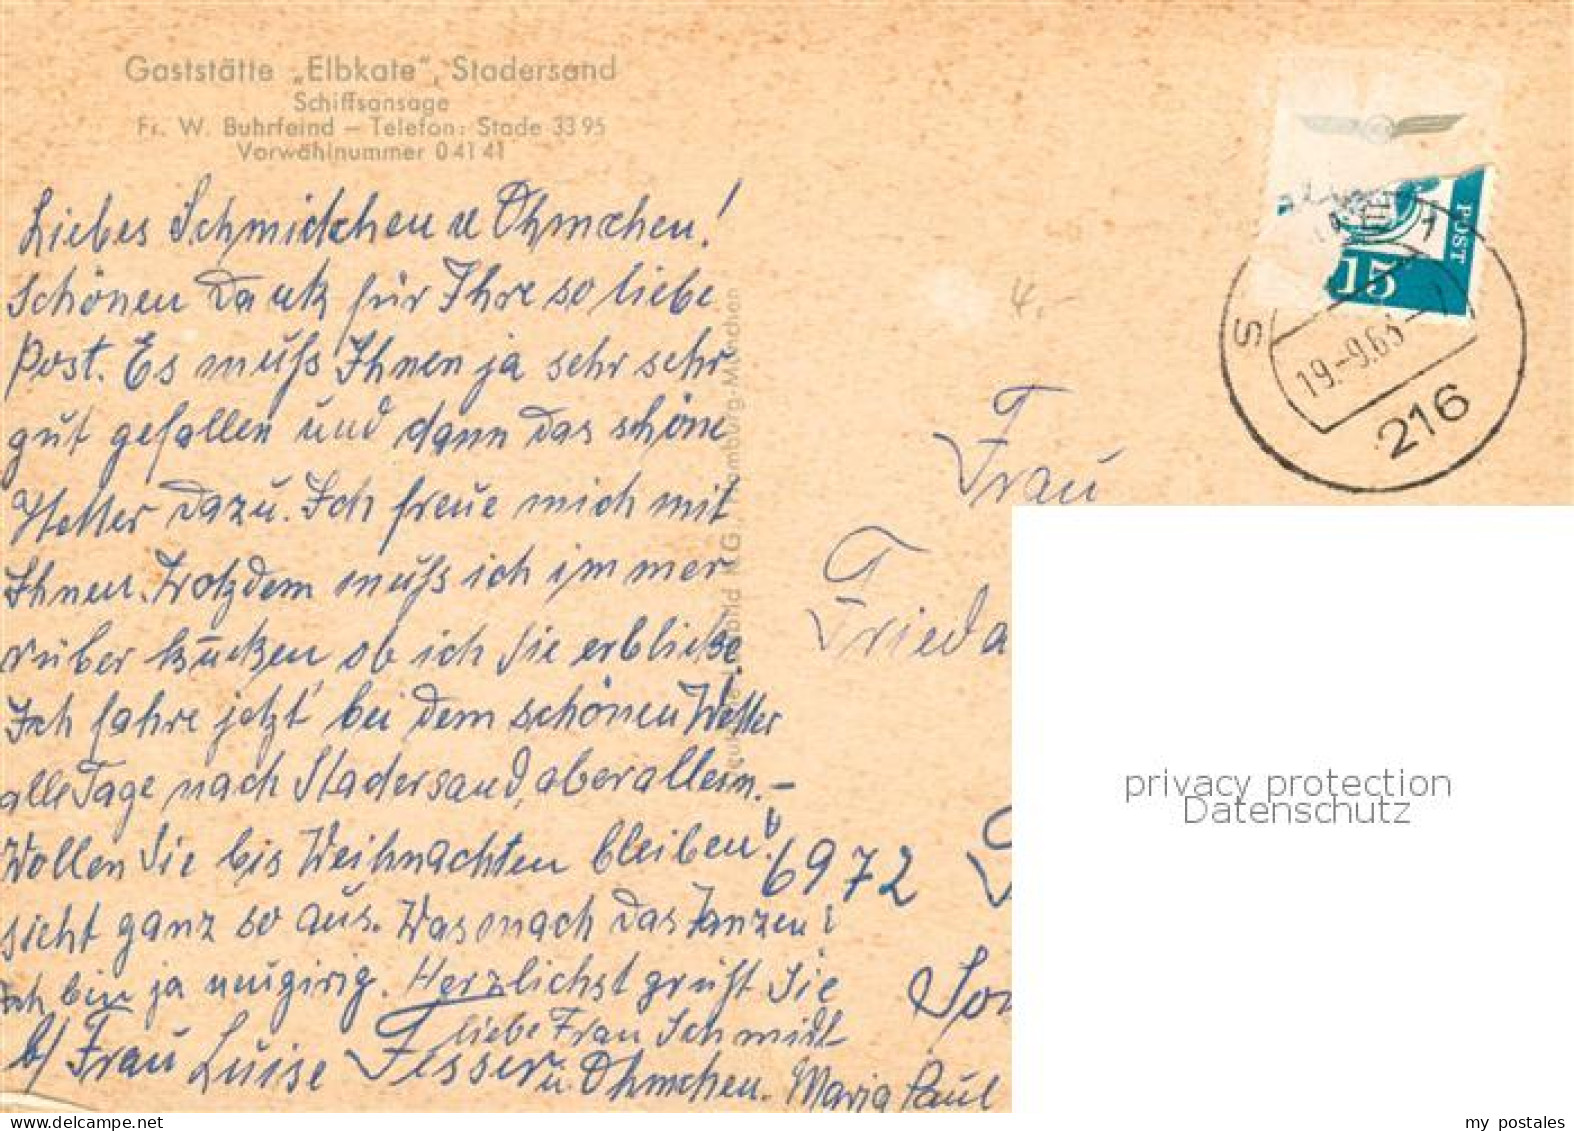 Gaststätte „Elbkate", Stadersand
Schiffsansage
Fr. W. Buhrfeind – Telefon: Stade 33 95
Vorwählnummer 0 41 41
Liebes Schmidtchen u Öhmchen!
Schönen Dank für Ihre so liebe
Post. Es muß Ihnen ja sehr sehr
gut gefallen und dann das schöne
Wetter dazu. Ich freue mich mit
Ihnen. Trotzdem muß ich immer
rüber kucken, ob ich Sie erblicke.
Ich fahre jetzt bei dem schönen Wetter
alle Tage nach Stadersand, aber allein. –
Wollen Sie bis Weihnachten bleiben?
sieht ganz so aus. Was mach das Tanzen?
Ich bin ja neugirig. Herzlichst grüßt Sie
liebe Frau Schmidt
u. Öhmchen. Maria Paul
b/ Frau Luise Fesser
Hamburg-München
POST
15
1
S
19.-9.63
216
4.-
Frau
Frieda
6972
privacy protection
Datenschutz
my postales